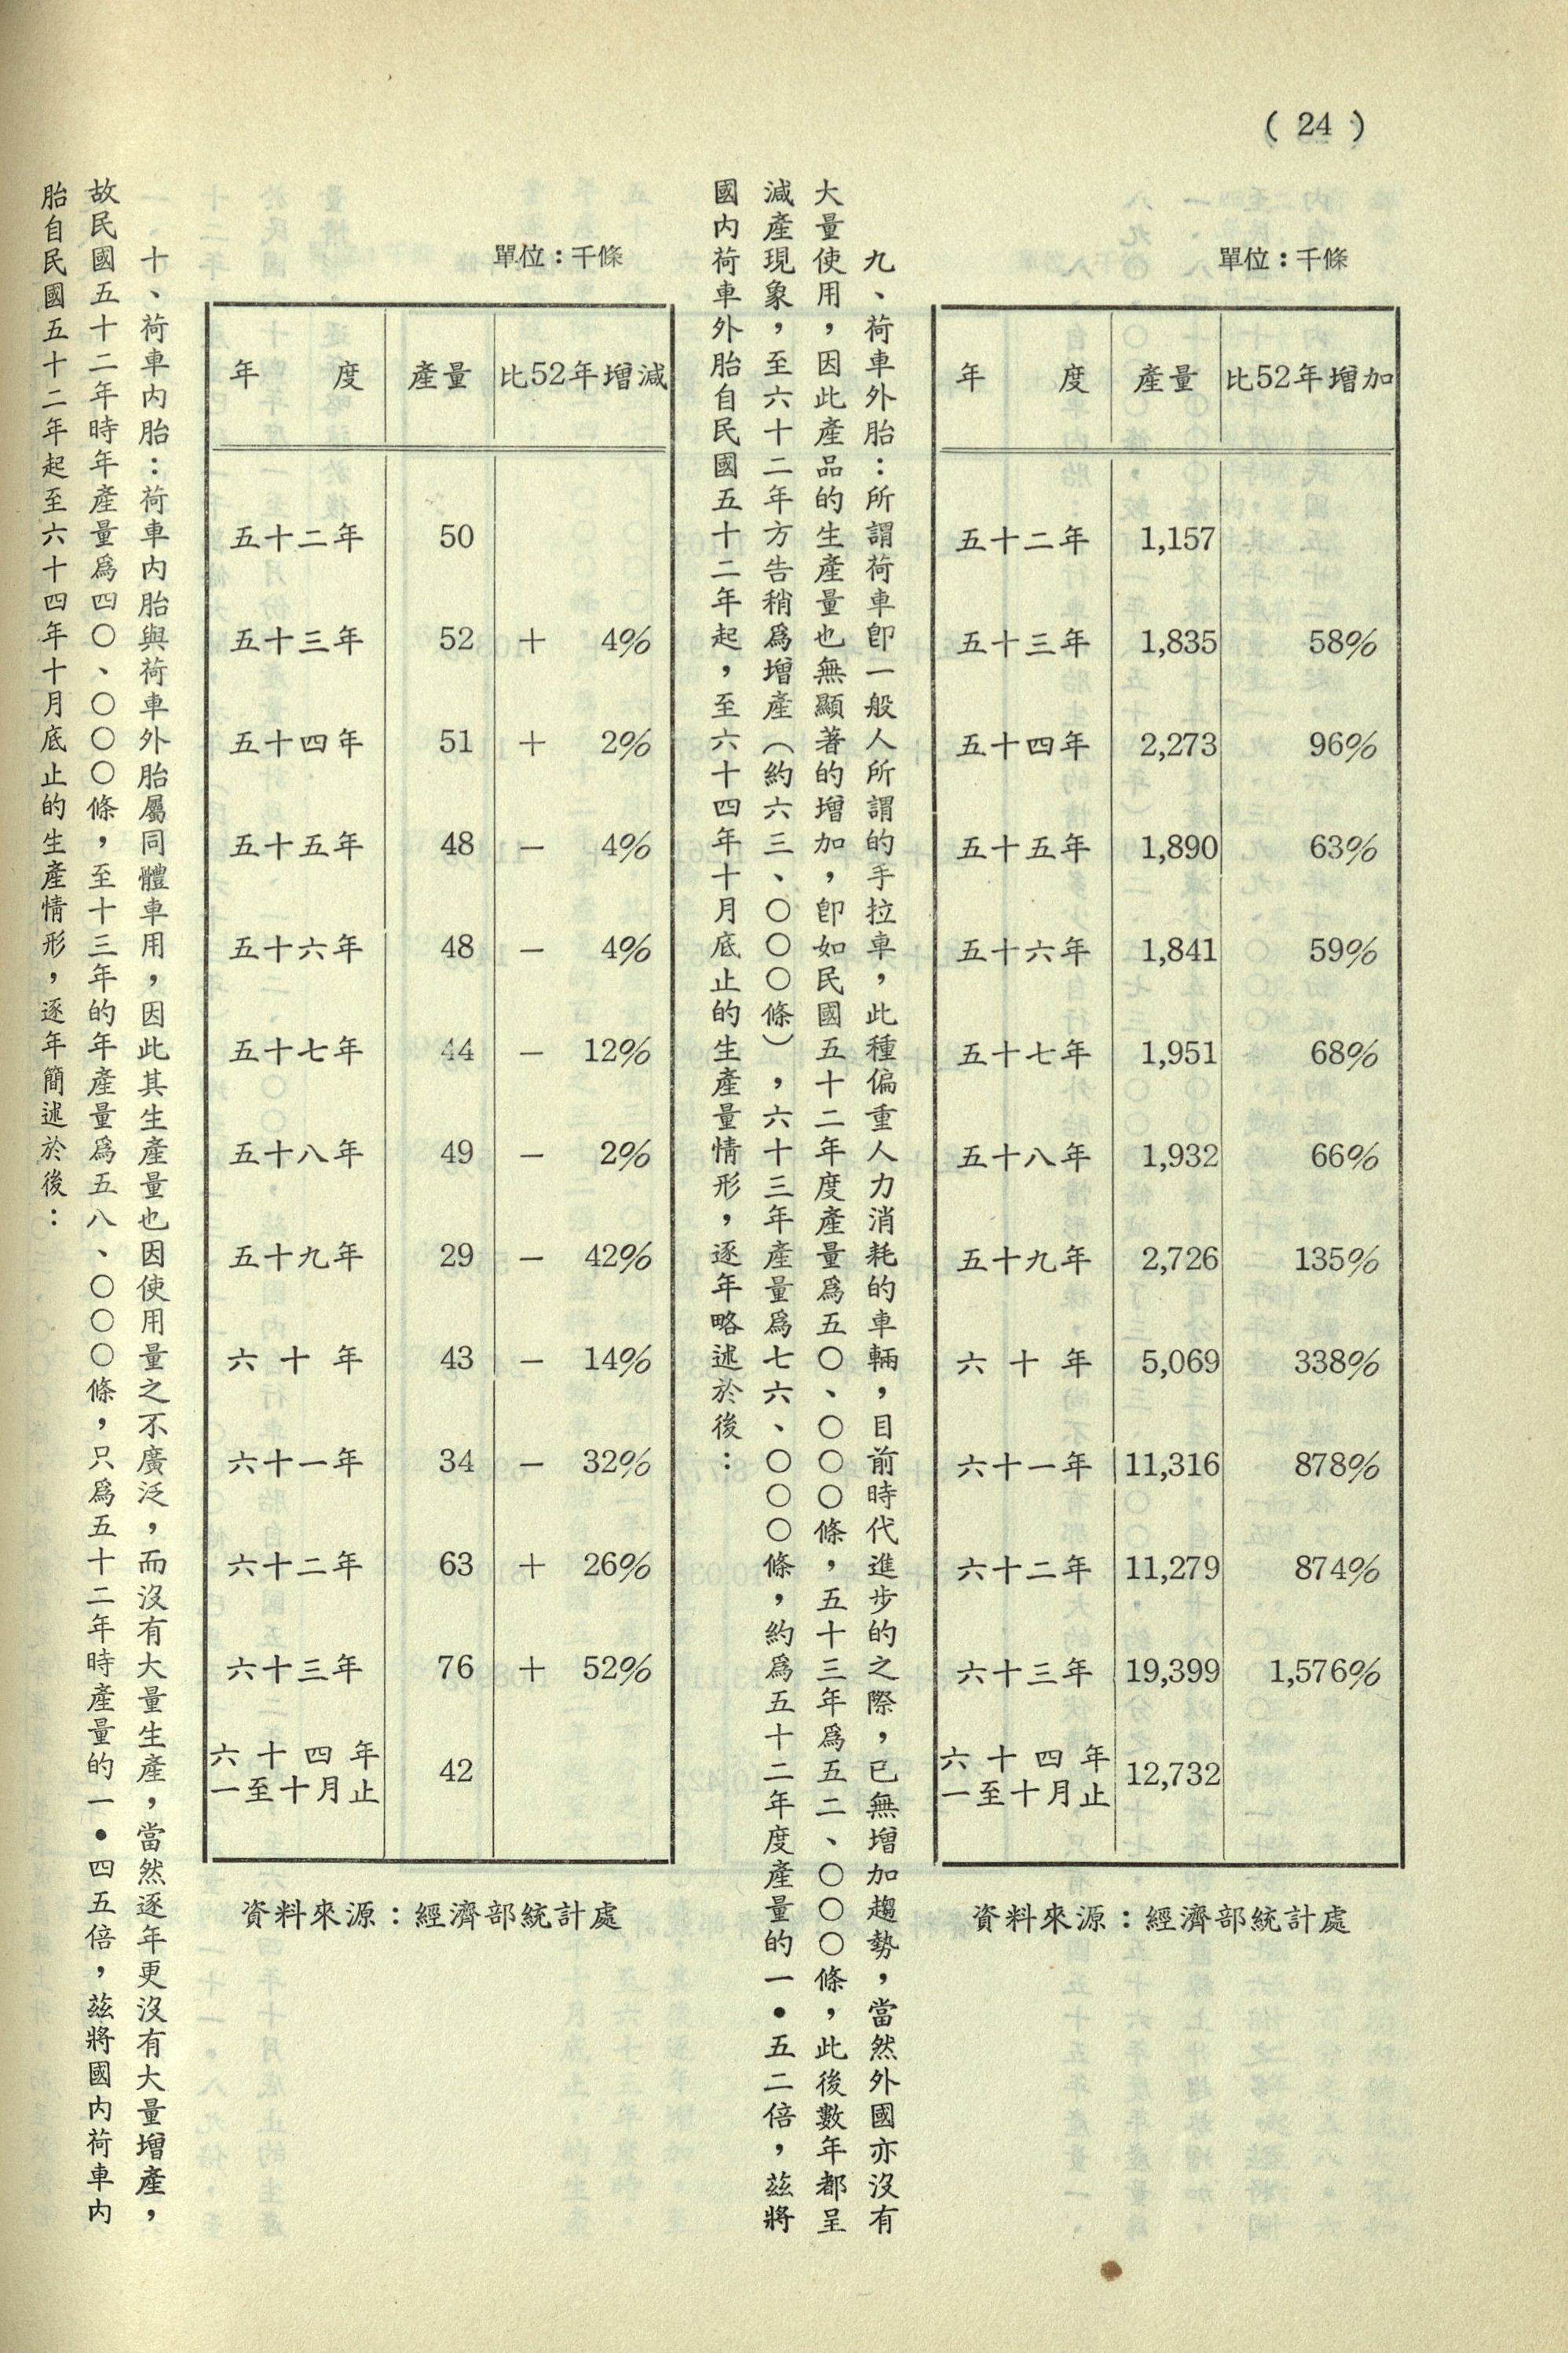 ( 24 )
單位：千條
年　度 產量 比52年增加
五十二年 1,157
五十三年 1,835 58%
五十四年 2,273 96%
五十五年 1,890 63%
五十六年 1,841 59%
五十七年 1,951 68%
五十八年 1,932 66%
五十九年 2,726 135%
六十年 5,069 338%
六十一年 11,316 878%
六十二年 11,279 874%
六十三年 19,399 1,576%
六十四年
一至十月止 12,732
資料來源：經濟部統計處
九、荷車外胎：所謂荷車卽一般人所謂的手拉車，此種偏重人力消耗的車輛，目前時代進步的之際，已無增加趨勢，當然外國亦沒有
大量使用，因此產品的生產量也無顯著的增加，卽如民國五十二年度產量爲五〇、〇〇〇條，五十三年爲五二、〇〇〇條，此後數年都呈
減產現象，至六十二年方告稍爲增產（約六三、〇〇〇條），六十三年產量爲七六、〇〇〇條，約爲五十二年度產量的一•五二倍，茲將
國內荷車外胎自民國五十二年起，至六十四年十月底止的生產量情形，逐年略述於後：
單位：千條
年　度 產量 比52年增減
五十二年 50
五十三年 52 ＋ 4%
五十四年 51 ＋ 2%
五十五年 48 － 4%
五十六年 48 － 4%
五十七年 44 － 12%
五十八年 49 － 2%
五十九年 29 － 42%
六十年 43 － 14%
六十一年 34 － 32%
六十二年 63 ＋ 26%
六十三年 76 ＋ 52%
六十四年
一至十月止 42
資料來源：經濟部統計處
十、荷車內胎：荷車內胎與荷車外胎屬同體車用，因此其生產量也因使用量之不廣泛，而沒有大量生產，當然逐年更沒有大量增產，
故民國五十二年時年產量爲四〇、〇〇〇條，至十三年的年產量爲五八、〇〇〇條，只爲五十二年時產量的一•四五倍，茲將國內荷車內
胎自民國五十二年起至六十四年十月底止的生產情形，逐年簡述於後：